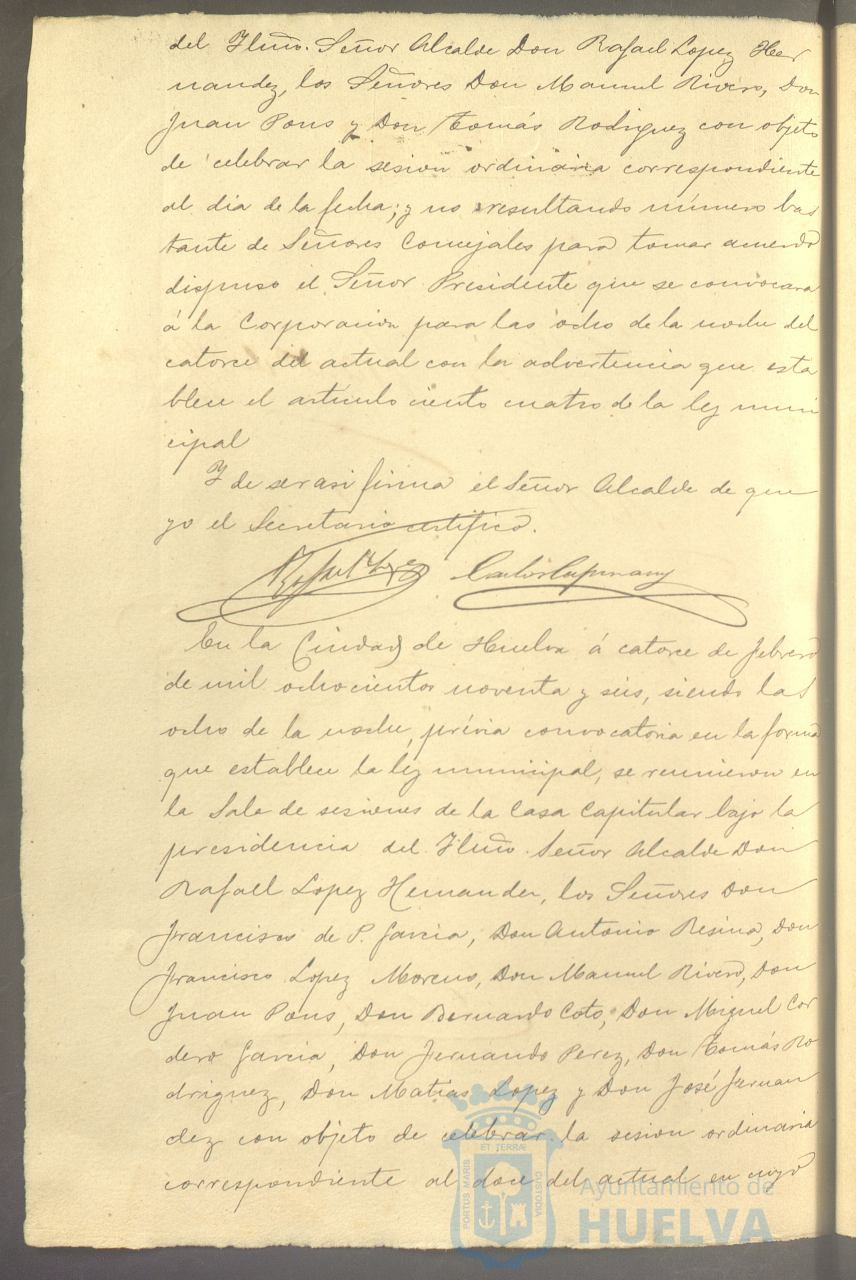 del Iltmo. Señor Alcalde Don Rafael Lopez Her
nandez, los Señores Don Manuel Rivero, Don
Juan Pons y Don Tomás Rodriguez con objeto
de celebrar la sesion ordinaria correspondiente
al dia de la fecha; y no resultando número bas
tante de Señores Concejales para tomar acuerdo
dispuso el Señor Presidente que se convocara
á la Corporacion para las ocho de la noche del
catorce del actual con la advertencia que esta
blece el articulo ciento cuatro de la ley muni
cipal
Y de ser asi firma el Señor Alcalde de que
yo el Secretario certifico.
Rafael Lopez
En la Ciudad de Huelva á catorce de febrero
de mil ochocientos noventa y seis, siendo las
ocho de la noche, prévia convocatoria en la forma
que establece la ley municipal, se reunieron en
la Sala de sesiones de la Casa Capitular bajo la
presidencia del Iltmo. Señor Alcalde Don
Rafael Lopez Hernandez, los Señores Don
Francisco de P. Garcia, Don Antonio Resina, Don
Francisco Lopez Moreno, Don Manuel Rivero, Don
Juan Pons, Don Bernardo Coto, Don Miguel Cor
dero Garcia, Don Fernando Perez, Don Tomás Ro
driguez, Don Matias Lopez y Don José Fernan
dez con objeto de celebrar la sesion ordinaria
correspondiente al doce del actual en cuyo
PORTUS MARIS ET TERRÆ CUSTODIA
Ayuntamiento de
HUELVA